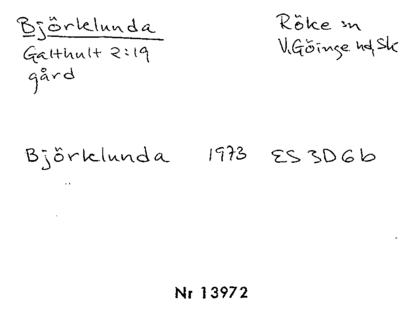 Björklunda
Galthult 2:19
gård
Röke sn
V.Göinge hd, Sk
Björklunda 1973 ES 3D6b
Nr 13972